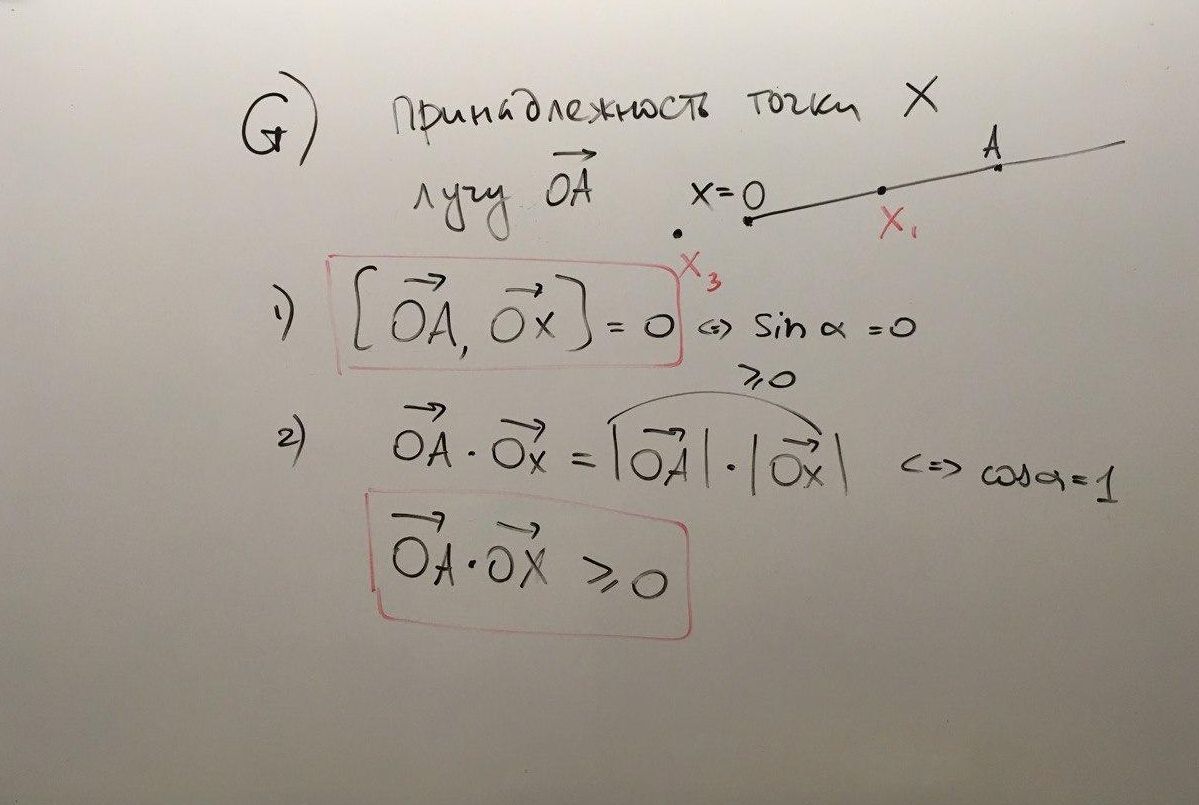 G) Принадлежность точки X
лучу OA⃗
A
x=O
X₁
X₃
1) [OA⃗, Ox⃗] = 0 <=> sin α = 0
≥0
2) OA⃗ · Ox⃗ = |OA⃗| · |Ox⃗| <=> cos α = 1
OA⃗ · OX⃗ ≥ 0